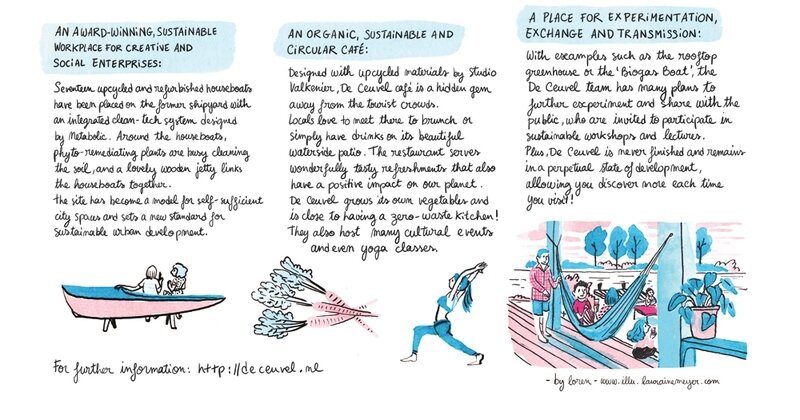 AN AWARD-WINNING, SUSTAINABLE
WORKPLACE FOR CREATIVE AND
SOCIAL ENTERPRISES:
Seventeen upcycled and refurbished houseboats
have been placed on the former shipyard with
an integrated clean-tech system designed
by Metabolic. Around the houseboats,
phyto-remediating plants are busy cleaning
the soil, and a lovely wooden jetty links
the houseboats together.
The site has become a model for self-sufficient
city spaces and sets a new standard for
sustainable urban development.
AN ORGANIC, SUSTAINABLE AND
CIRCULAR CAFÉ:
Designed with upcycled materials by Studio
Valkenier, De Ceuvel café is a hidden gem
away from the tourist crowds.
Locals love to meet there to brunch or
simply have drinks on its beautiful
waterside patio. The restaurant serves
wonderfully tasty refreshments that also
have a positive impact on our planet.
De Ceuvel grows its own vegetables and
is close to having a zero-waste kitchen!
They also host many cultural events
and even yoga classes.
A PLACE FOR EXPERIMENTATION,
EXCHANGE AND TRANSMISSION:
With examples such as the rooftop
greenhouse or the 'Biogas Boat', the
De Ceuvel team has many plans to
further experiment and share with the
public, who are invited to participate in
sustainable workshops and lectures.
Plus, De Ceuvel is never finished and remains
in a perpetual state of development,
allowing you discover more each time
you visit!
For further information: http://deceuvel.nl
- by loren - www.illu.laurainemeyer.com